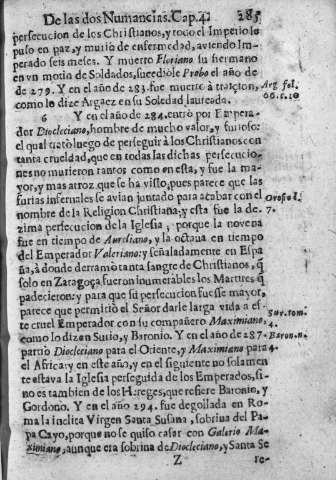 De las dos Numancias. Cap. 42 285
persecucion de los Christianos, y todo el Imperio lo
puso en paz, y murió de enfermedad, aviendo Im-
perado seis meses. Y muerto Floriano su hermano
en vn motin de Soldados, sucediòle Probo el año de
de 279. Y en el año de 283. fue muerto à traicion,
como lo dize Argaez en su Soledad laureada.
Arg. fol.
66. s. 10
6 Y en el año de 284. entrò por Empera-
dor Diocleciano, hombre de mucho valor, y furioso:
el qual tratò luego de perseguir à los Christianos con
tanta crueldad, que en todas las dichas persecucio-
nes no murieron tantos como en esta, y fue la ma-
yor, y mas atroz que se ha visto, pues parece que las
furias infernales se avian juntado para acabar con el
nombre de la Religion Christiana, y esta fue la de-
Orosio l.
7.
zima persecucion de la Iglesia, porque la novena
fue en tiempo de Aureliano, y la octaua en tiempo
del Emperador Valeriano: y señaladamente en Espa
ña, à donde derramò tanta sangre de Christianos, q̃
solo en Zaragoça fueron inumerables los Martires q̃
padecieron: y para que su persecucion fuesse mayor,
parece que permitiò el Señor darle larga vida a es-
te cruel Emperador con su compañero Maximiano,
Sur. tom.
4.
como lo dizen Surio, y Baronio. Y en el año de 287.
Baron. n.
4.
partiò Diocleciano para el Oriente, y Maximiano para
el Africa: y en este año, y en el siguiente no solamen
te estava la Iglesia perseguida de los Emperados, si-
no es tambien de los Hereges, que refiere Baronio, y
Gordono. Y en el año 294. fue degollada en Ro-
ma la inclita Virgen Santa Susana, sobrina del Pa-
pa Cayo, porque no se quiso casar con Galerio Ma-
ximiano, aunque era sobrina de Diocleciano, y Santa Se
Z re-